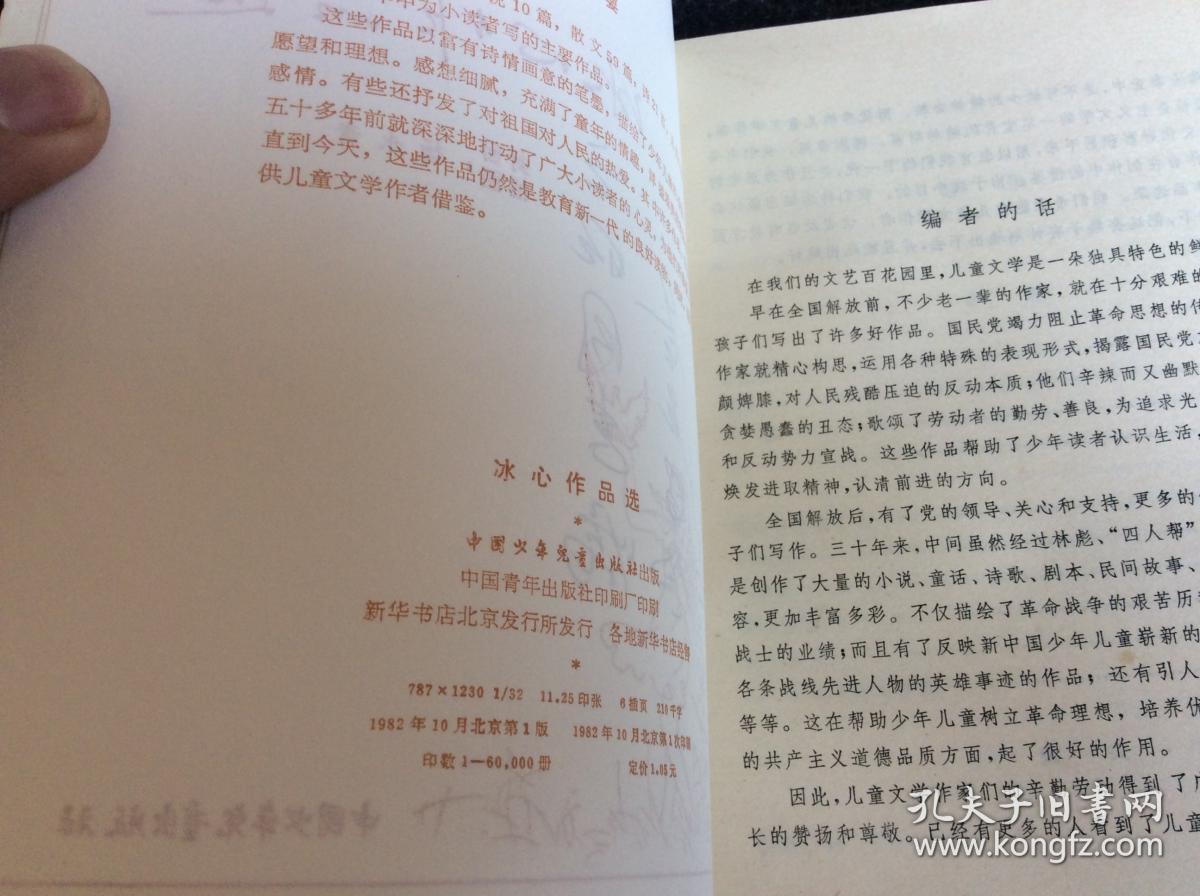 10篇，散文50篇，
中为小读者写的主要作品。
这些作品以富有诗情画意的笔墨，描绘了少年儿童
愿望和理想。感想细腻，充满了童年的情趣，
感情。有些还抒发了对祖国对人民的热爱。其中许多
五十多年前就深深地打动了广大小读者的心灵，
直到今天，这些作品仍然是教育新一代的良好读物，
供儿童文学作者借鉴。
冰心作品选
*
中国少年儿童出版社出版
中国青年出版社印刷厂印刷
新华书店北京发行所发行 各地新华书店经售
*
787×1230 1/32 11.25印张 6插页 210千字
1982年10月北京第1版 1982年10月北京第1次印刷
印数1—60,000册 定价1.05元
编者的话
在我们的文艺百花园里，儿童文学是一朵独具特色的鲜
早在全国解放前，不少老一辈的作家，就在十分艰难的
孩子们写出了许多好作品。国民党竭力阻止革命思想的传
作家就精心构思，运用各种特殊的表现形式，揭露国民党
颜婢膝，对人民残酷压迫的反动本质；他们辛辣而又幽默
贪婪愚蠢的丑态；歌颂了劳动者的勤劳、善良，为追求光
和反动势力宣战。这些作品帮助了少年读者认识生活，
焕发进取精神，认清前进的方向。
全国解放后，有了党的领导、关心和支持，更多的
子们写作。三十年来，中间虽然经过林彪、“四人帮”
是创作了大量的小说、童话、诗歌、剧本、民间故事、
容，更加丰富多彩。不仅描绘了革命战争的艰苦历
战士的业绩；而且有了反映新中国少年儿童崭新的
各条战线先进人物的英雄事迹的作品；还有引人
等等。这在帮助少年儿童树立革命理想，培养优
的共产主义道德品质方面，起了很好的作用。
因此，儿童文学作家们的辛勤劳动得到了广
长的赞扬和尊敬。已经有更多的人看到了儿童
孔夫子旧书网
www.kongfz.com